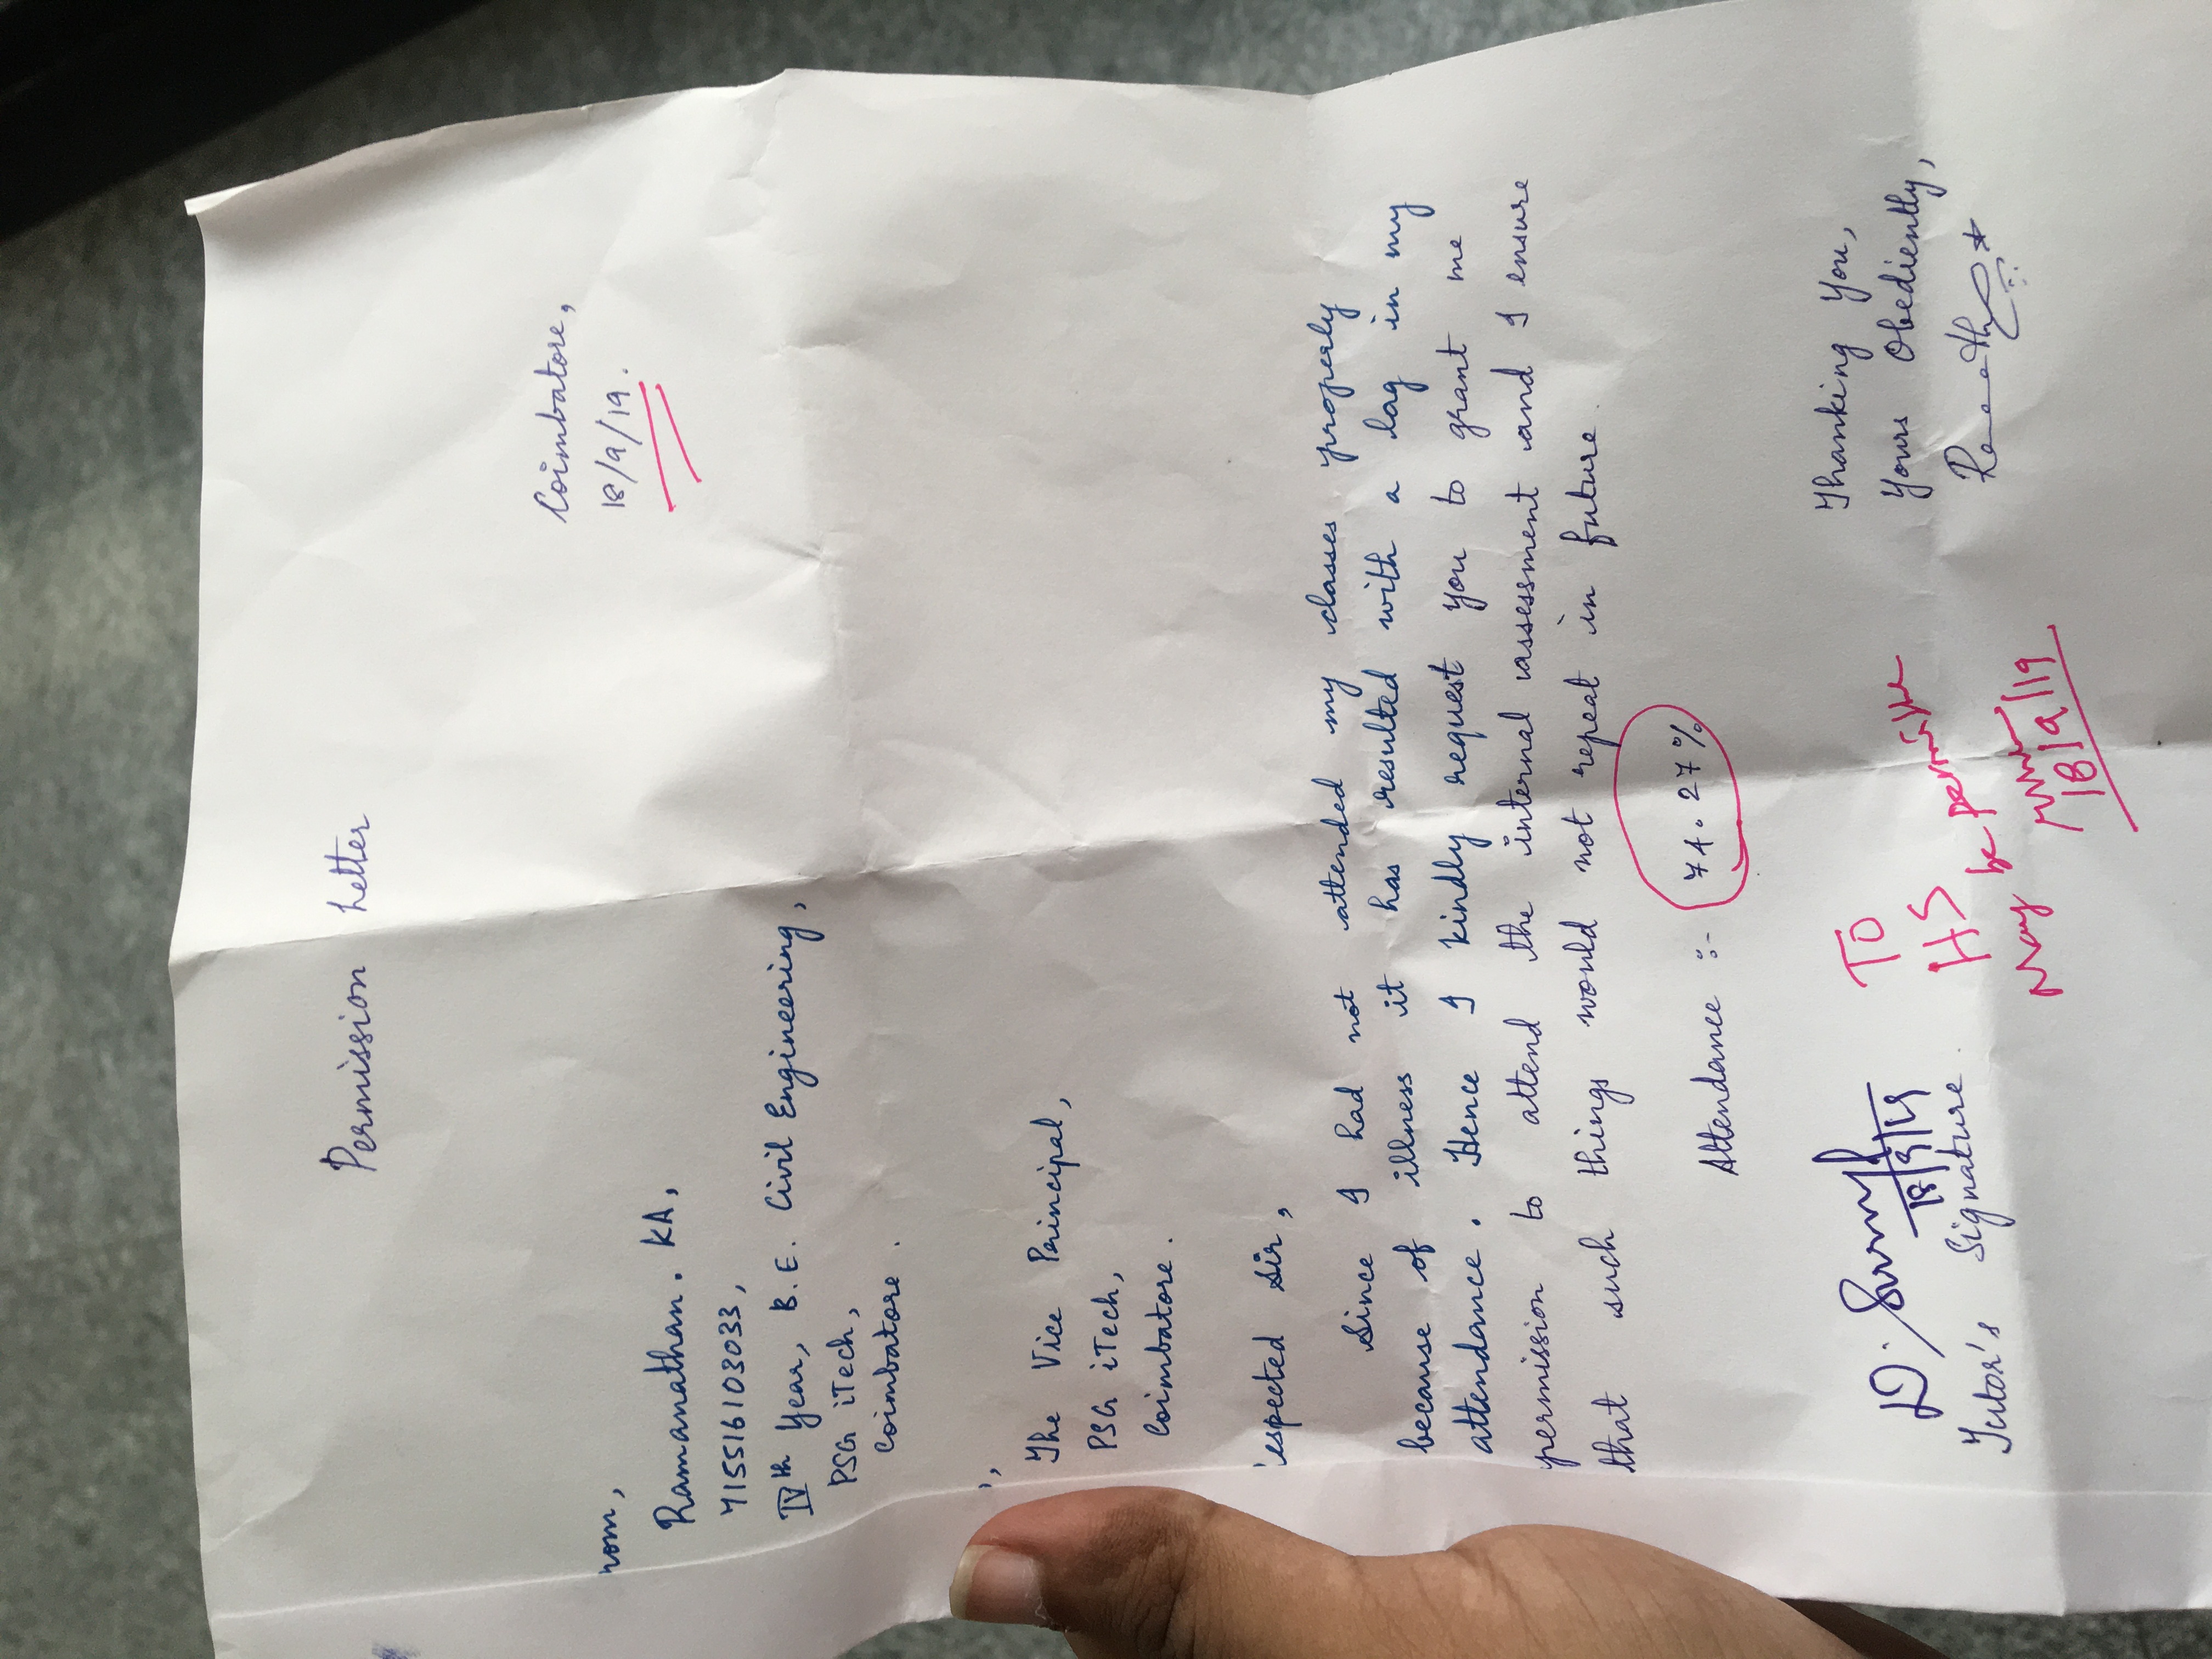 Permission Letter
Coimbatore,
18/9/19.
rom,
Ramanathan. KA,
715516103033,
IVth Year, B.E. Civil Engineering,
PSG iTech,
Coimbatore.
,
The Vice Principal,
PSG iTech,
Coimbatore.
espected Sir,
Since I had not attended my classes properly
because of illness it has resulted with a lag in my
attendance. Hence I kindly request you to grant me
permission to attend the internal assessment and I ensure
that such things would not repeat in future.
Attendance :- 74.27%
Thanking You,
Yours Obediently,
D.
18/9/19
Tutor's Signature.
TO
HS
May be
18/9/19